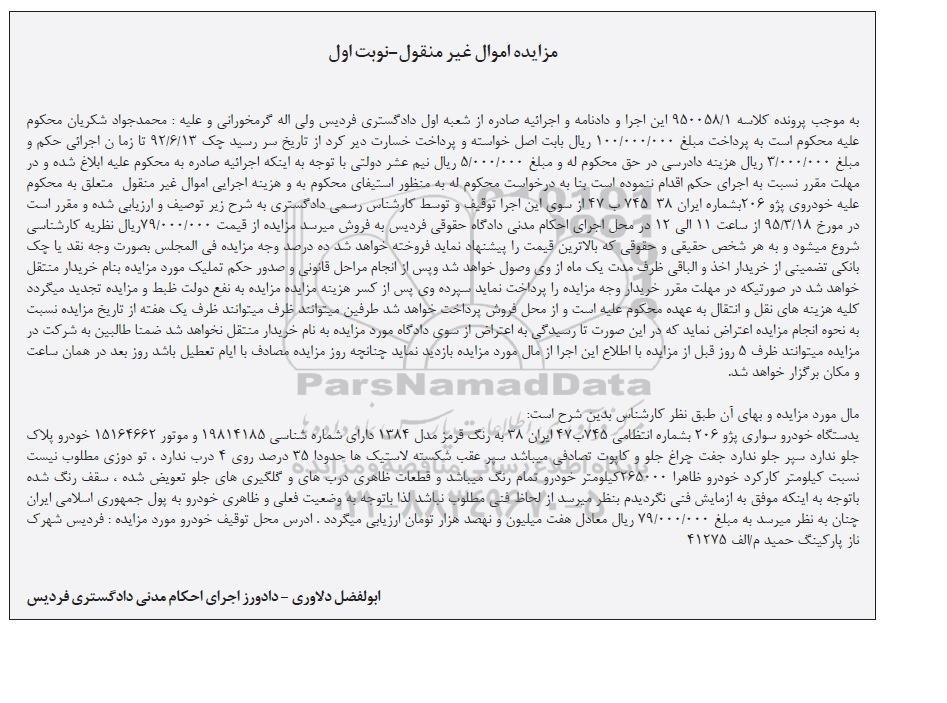 مزایده اموال غیر منقول-نوبت اول
به موجب پرونده کلاسه ۹۵۰۰۵۸/۱ این اجرا و دادنامه و اجرائیه صادره از شعبه اول دادگستری فردیس ولی اله گرمخورانی و علیه : محمدجواد شکریان محکوم
علیه محکوم است به پرداخت مبلغ ۱۰۰/۰۰۰/۰۰۰ ریال بابت اصل خواسته و پرداخت خسارت دیر کرد از تاریخ سر رسید چک ۹۲/۶/۱۳ تا زما ن اجرائی حکم و
مبلغ ۳/۰۰۰/۰۰۰ ریال هزینه دادرسی در حق محکوم له و مبلغ ۵/۰۰۰/۰۰۰ ریال نیم عشر دولتی با توجه به اینکه اجرائیه صادره به محکوم علیه ابلاغ شده و در
مهلت مقرر نسبت به اجرای حکم اقدام ننموده است بنا به درخواست محکوم له به منظور استیفای محکوم به و هزینه اجرایی اموال غیر منقول متعلق به محکوم
علیه خودروی پژو ۲۰۶بشماره ایران ۳۸ ۷۴۵ ب ۴۷ از سوی این اجرا توقیف و توسط کارشناس رسمی دادگستری به شرح زیر توصیف و ارزیابی شده و مقرر است
در مورخ ۹۵/۳/۱۸ از ساعت ۱۱ الی ۱۲ در محل اجرای احکام مدنی دادگاه حقوقی فردیس به فروش میرسد مزایده از قیمت ۷۹/۰۰۰/۰۰۰ریال نظریه کارشناسی
شروع میشود و به هر شخص حقیقی و حقوقی که بالاترین قیمت را پیشنهاد نماید فروخته خواهد شد ده درصد وجه مزایده فی المجلس بصورت وجه نقد یا چک
بانکی تضمینی از خریدار اخذ و الباقی ظرف مدت یک ماه از وی وصول خواهد شد وپس از انجام مراحل قانونی و صدور حکم تملیک مورد مزایده بنام خریدار منتقل
خواهد شد در صورتیکه در مهلت مقرر خریدار وجه مزایده را پرداخت نماید سپرده وی پس از کسر هزینه مزایده مزایده به نفع دولت ظبط و مزایده تجدید میگردد
کلیه هزینه های نقل و انتقال به عهده محکوم علیه است و از محل فروش پرداخت خواهد شد طرفین میتوانند ظرف میتوانند ظرف یک هفته از تاریخ مزایده نسبت
به نحوه انجام مزایده اعتراض نماید که در این صورت تا رسیدگی به اعتراض از سوی دادگاه مورد مزایده به نام خریدار منتقل نخواهد شد ضمنا طالبین به شرکت در
مزایده میتوانند ظرف ۵ روز قبل از مزایده با اطلاع این اجرا از مال مورد مزایده بازدید نماید چنانچه روز مزایده مصادف با ایام تعطیل باشد روز بعد در همان ساعت
و مکان برگزار خواهد شد.
ParsNamadData
مال مورد مزایده و بهای آن طبق نظر کارشناس بدین شرح است:
یدستگاه خودرو سواری پژو ۲۰۶ بشماره انتظامی ۷۴۵ب۴۷ ایران ۳۸ به رنگ قرمز مدل ۱۳۸۴ دارای شماره شناسی ۱۹۸۱۴۱۸۵ و موتور ۱۵۱۶۴۶۶۲ خودرو پلاک
جلو ندارد سپر جلو ندارد جفت چراغ جلو و کاپوت تصادفی میباشد سپر عقب شکسته لاستیک ها حدودا ۳۵ درصد روی ۴ درب ندارد ، تو دوزی مطلوب نیست
نسبت کیلومتر کارکرد خودرو ظاهرا ۲۶۵۰۰۰کیلومتر خودرو تمام رنگ میباشد و قطعات ظاهری درب های و گلگیری های جلو تعویض شده ، سقف رنگ شده
باتوجه به اینکه موفق به ازمایش فنی نگردیدم بنظر میرسد از لحاظ فنی مطلوب نباشد لذا باتوجه به وضعیت فعلی و ظاهری خودرو به پول جمهوری اسلامی ایران
چنان به نظر میرسد به مبلغ ۷۹/۰۰۰/۰۰۰ ریال معادل هفت میلیون و نهصد هزار تومان ارزیابی میگردد . ادرس محل توقیف خودرو مورد مزایده : فردیس شهرک
ناز پارکینگ حمید م/الف ۴۱۲۷۵
ابولفضل دلاوری - دادورز اجرای احکام مدنی دادگستری فردیس